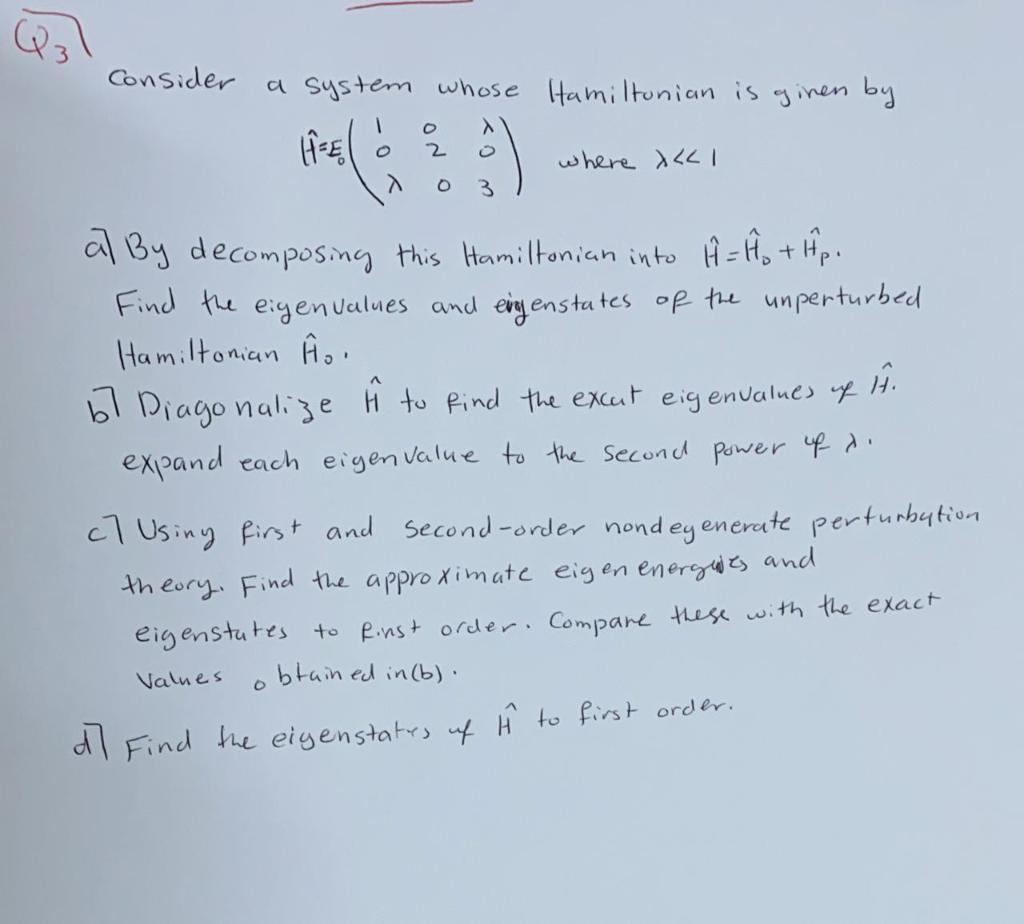 Q3
Consider a system whose Hamiltonian is given by
Ĥ=E₀ ( 1 0 λ
0 2 0
λ 0 3 ) where λ<<1
a) By decomposing this Hamiltonian into Ĥ=Ĥ₀+Ĥₚ.
Find the eigenvalues and eigenstates of the unperturbed
Hamiltonian Ĥ₀.
b) Diagonalize Ĥ to find the excut eigenvalues of Ĥ.
expand each eigenvalue to the second power of λ.
c) Using first and second-order nondegenerate perturbation
theory. Find the approximate eigen energies and
eigenstates to first order. Compare these with the exact
values obtained in (b).
d) Find the eigenstates of Ĥ to first order.